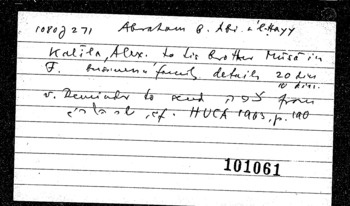 1080 J 271 Abraham b. Abi al-Hayy
Kalila, Alex. to his brother Mūsā in
F. business family details 20 dinars
10 dinars
v. Reminder to send from
cf. HUCA 1965, p. 190
101061